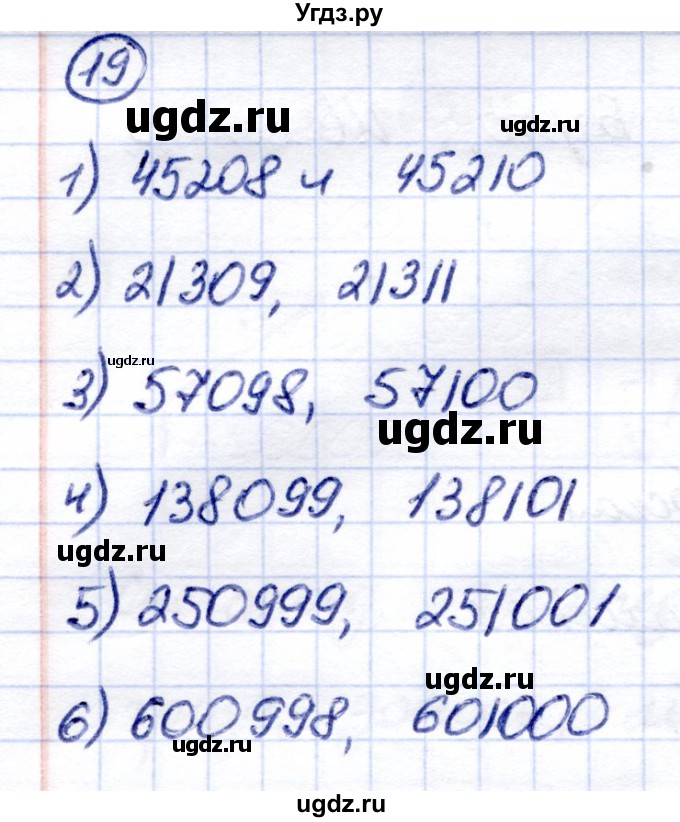 Угдз.ру
19
ugdz.ru
ugdz.ru
1) 45208 и 45210
2) 21309, 21311
ugdz.ru
3) 57098, 57100
ugdz.ru
4) 138099, 138101
ugdz.ru
5) 250999, 251001
ugdz.ru
6) 600998, 601000
ugdz.ru
ugdz.ru